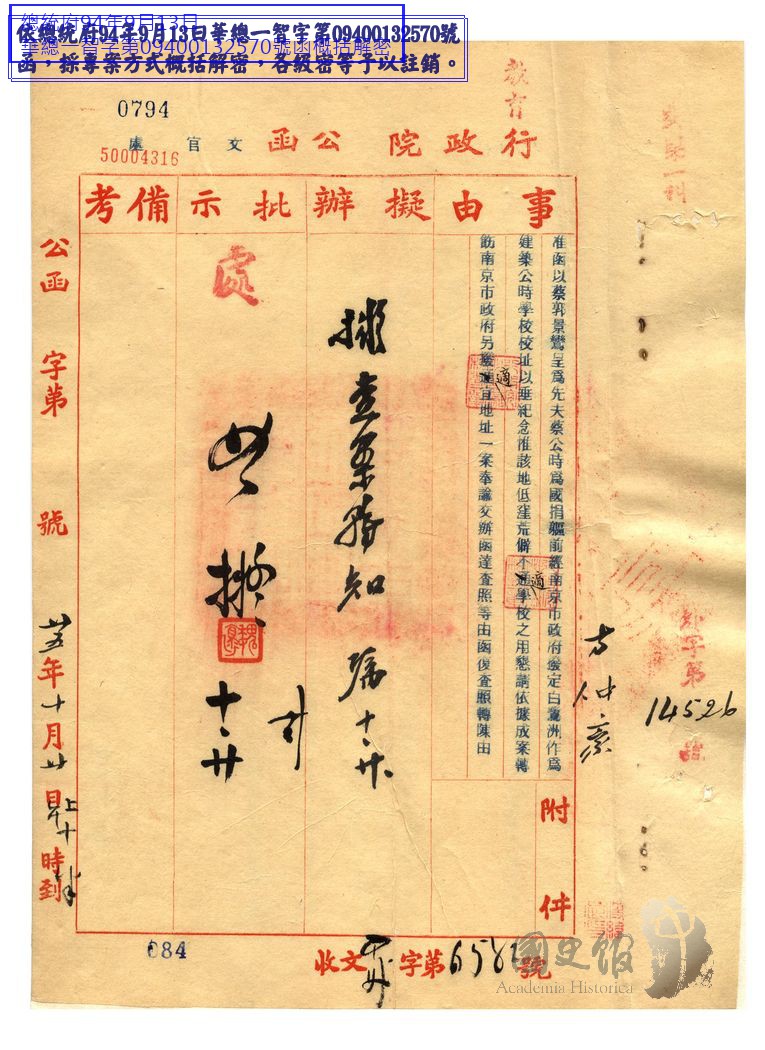 總統府94年9月13日
華總一智字第09400132570號函概括解密
依總統府94年9月13日華總一智字第09400132570號
函，採專案方式概括解密，各級密等予以註銷。
0794
教育
行政院公函
文官處
50004316
事由
擬辦
批示
備考
准函以蔡郭景鸞呈爲先夫蔡公時爲國捐軀前經南京市政府鑒定白鷺洲作爲
建築公時學校校址以垂紀念惟該地低窪荒僻不適學校之用懇請依據成案轉
飭南京市政府另鑒適宜地址一案奉諭交辦函達查照等由函復查照轉陳由
適
適
擬查案存知
十、廿、
處
如擬
十、廿
附件
公函 字第 號
廿五年十月廿日上午十時到
方仲豪
字第
14526
號
084
收文 字第658 號
國史館
Academia Historica